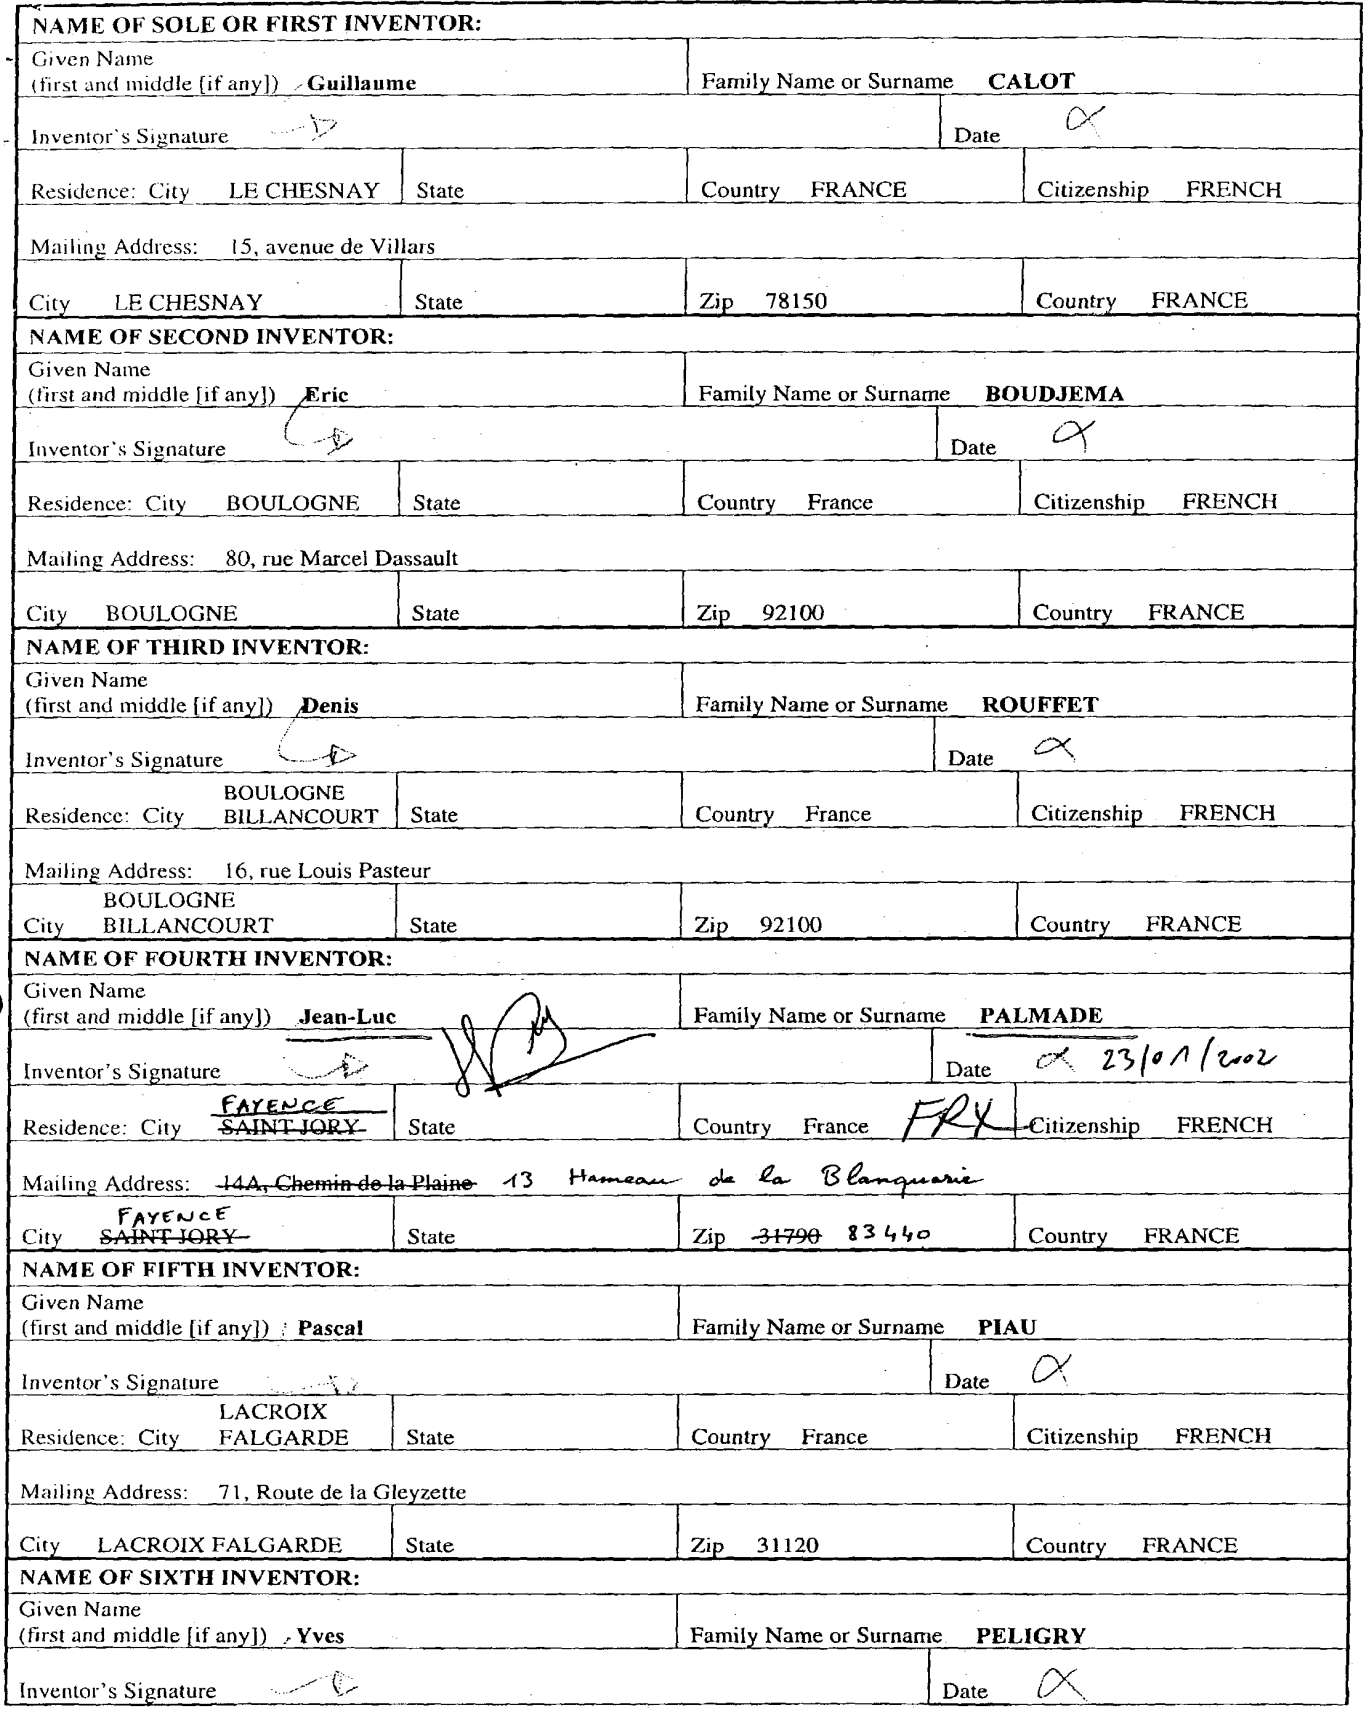 NAME OF SOLE OR FIRST INVENTOR:
Given Name
(first and middle [if any]) Guillaume Family Name or Surname CALOT
Inventor's Signature Date
Residence: City LE CHESNAY State Country FRANCE Citizenship FRENCH
Mailing Address: 15, avenue de Villars
City LE CHESNAY State Zip 78150 Country FRANCE
NAME OF SECOND INVENTOR:
Given Name
(first and middle [if any]) Eric Family Name or Surname BOUDJEMA
Inventor's Signature Date
Residence: City BOULOGNE State Country France Citizenship FRENCH
Mailing Address: 80, rue Marcel Dassault
City BOULOGNE State Zip 92100 Country FRANCE
NAME OF THIRD INVENTOR:
Given Name
(first and middle [if any]) Denis Family Name or Surname ROUFFET
Inventor's Signature Date
BOULOGNE
Residence: City BILLANCOURT State Country France Citizenship FRENCH
Mailing Address: 16, rue Louis Pasteur
BOULOGNE
City BILLANCOURT State Zip 92100 Country FRANCE
NAME OF FOURTH INVENTOR:
Given Name
(first and middle [if any]) Jean-Luc Family Name or Surname PALMADE
Inventor's Signature Date 23/01/2002
FAYENCE
Residence: City SAINT JORY State Country France FRX Citizenship FRENCH
Mailing Address: 14A, Chemin de la Plaine 13 Hameau de la Blanquarie
FAYENCE
City SAINT JORY State Zip 31790 83440 Country FRANCE
NAME OF FIFTH INVENTOR:
Given Name
(first and middle [if any]) Pascal Family Name or Surname PIAU
Inventor's Signature Date
LACROIX
Residence: City FALGARDE State Country France Citizenship FRENCH
Mailing Address: 71, Route de la Gleyzette
City LACROIX FALGARDE State Zip 31120 Country FRANCE
NAME OF SIXTH INVENTOR:
Given Name
(first and middle [if any]) Yves Family Name or Surname PELIGRY
Inventor's Signature Date